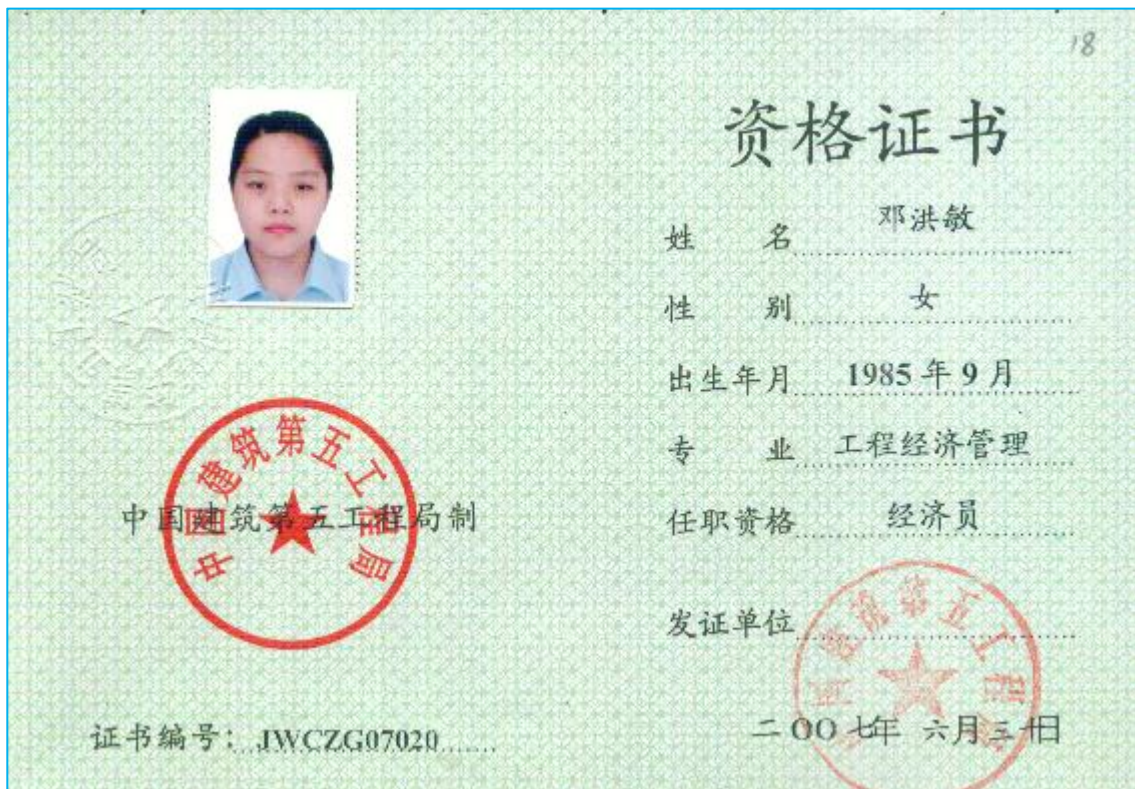 18
资格证书
姓 名 邓洪敏
性 别 女
出生年月 1985年9月
专 业 工程经济管理
任职资格 经济员
发证单位
中国建筑第五工程局
二〇〇七年 六月三十日
中国建筑第五工程局制
中国建筑第五工程局
证书编号：JWCZG07020